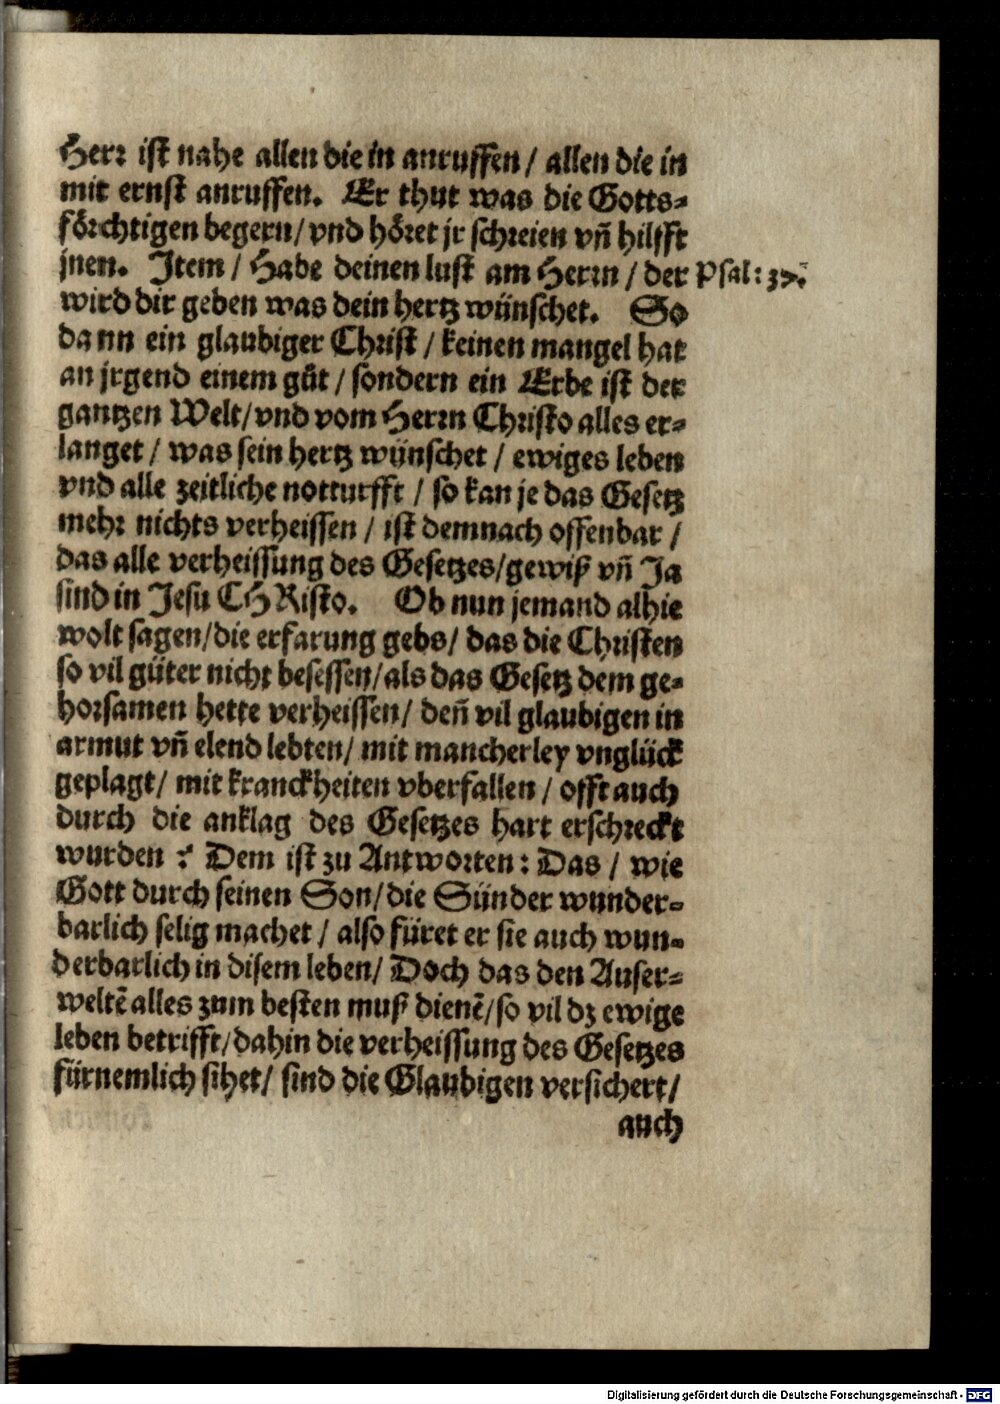 Herr ist nahe allen die in anruffen / allen die in
mit ernst anruffen. Er thut was die Gotts-
förchtigen begern / vnd höret jr schreien vñ hilfft
jnen. Item / Habe deinen lust am Herrn / der Psal: 37.
wird dir geben was dein hertz wünschet. So
dann ein glaubiger Christ / keinen mangel hat
an jrgend einem gůt / sondern ein Erbe ist der
gantzen Welt / vnd vom Herrn Christo alles er-
langet / was sein hertz wünschet / ewiges leben
vnd alle zeitliche notturfft / so kan je das Gesetz
mehr nichts verheissen / ist demnach offenbar /
das alle verheissung des Gesetzes / gewiß vñ Ja
sind in Jesu CHRisto. Ob nun jemand alhie
wolt sagen / die erfarung gebs / das die Christen
so vil güter nicht besessen / als das Gesetz dem ge-
horsamen hette verheissen / deñ vil glaubigen in
armut vñ elend lebten / mit mancherley vnglück
geplagt / mit kranckheiten vberfallen / offt auch
durch die anklag des Gesetzes hart erschreckt
wurden ? Dem ist zu Antworten : Das / wie
Gott durch seinen Son / die Sünder wunder-
barlich selig machet / also füret er sie auch wun-
derbarlich in disem leben / Doch das den Auser-
weltē alles zum besten muß dienē / so vil dz ewige
leben betrifft / dahin die verheissung des Gesetzes
fürnemlich sihet / sind die Glaubigen versichert /
auch
Digitalisierung gefördert durch die Deutsche Forschungsgemeinschaft - DFG